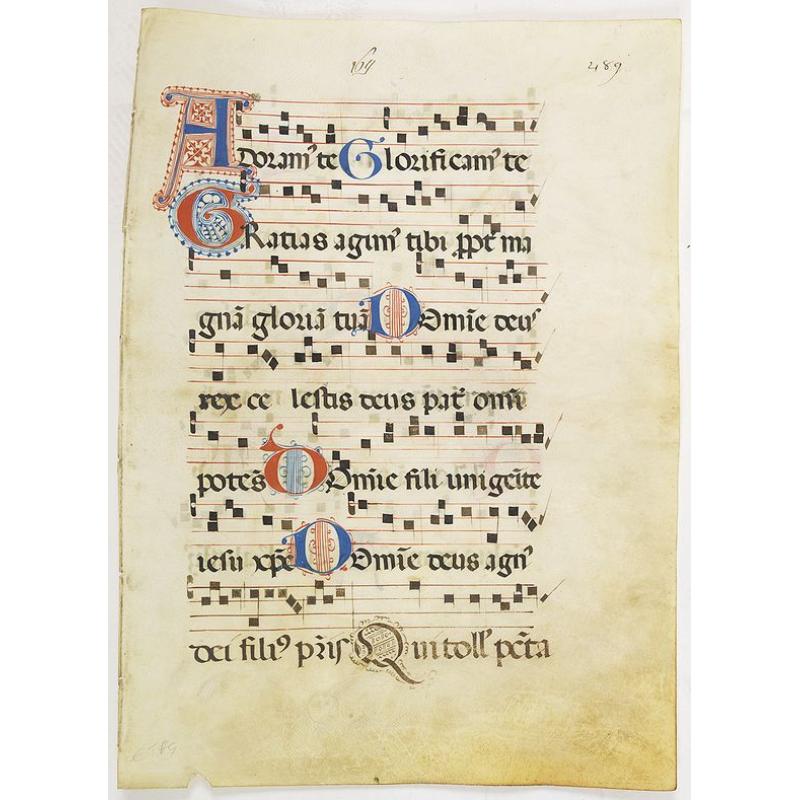 164 489
Adoram᾽ te Glorificam᾽ te
Gratias agim᾽ tibi ꝓpt̄ ma
gnā gloriā tuā Domīe deus
rex ce lestis deus pat̄ om̄i
potēs Domīe fili unigēite
iesu xp̄e Domīe deus agn᾽
dei fili᾽ pr̄is Qui toll᾽ pc̄ta